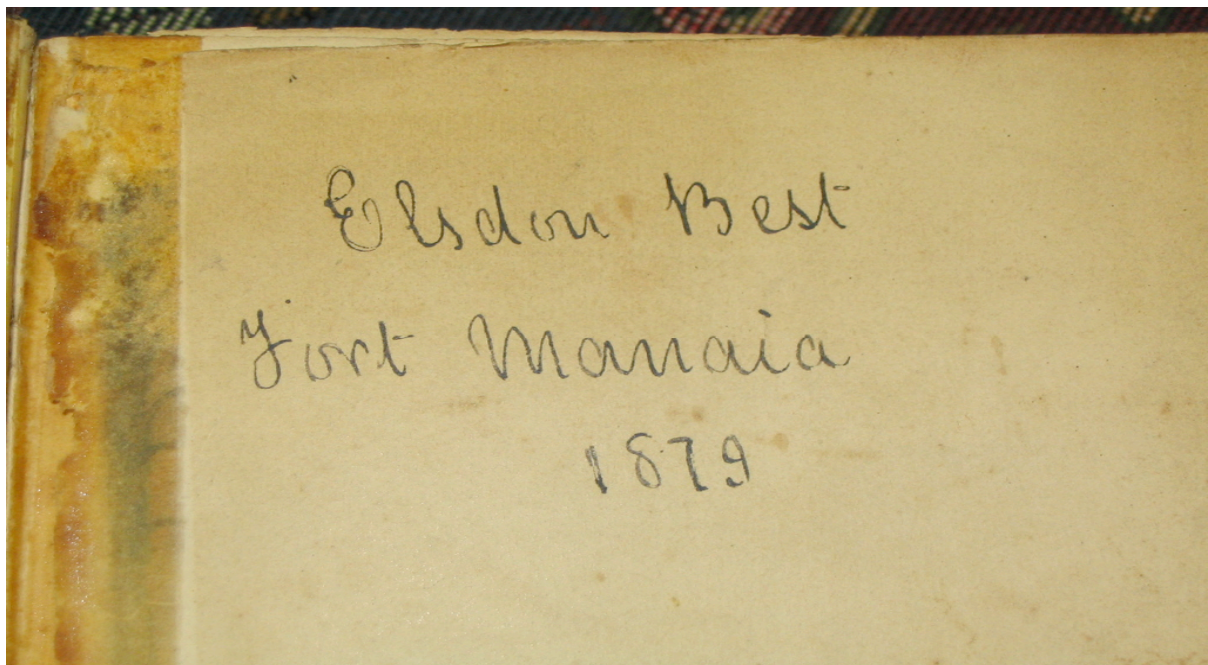 Elsdon Best
Fort Manaia
1879